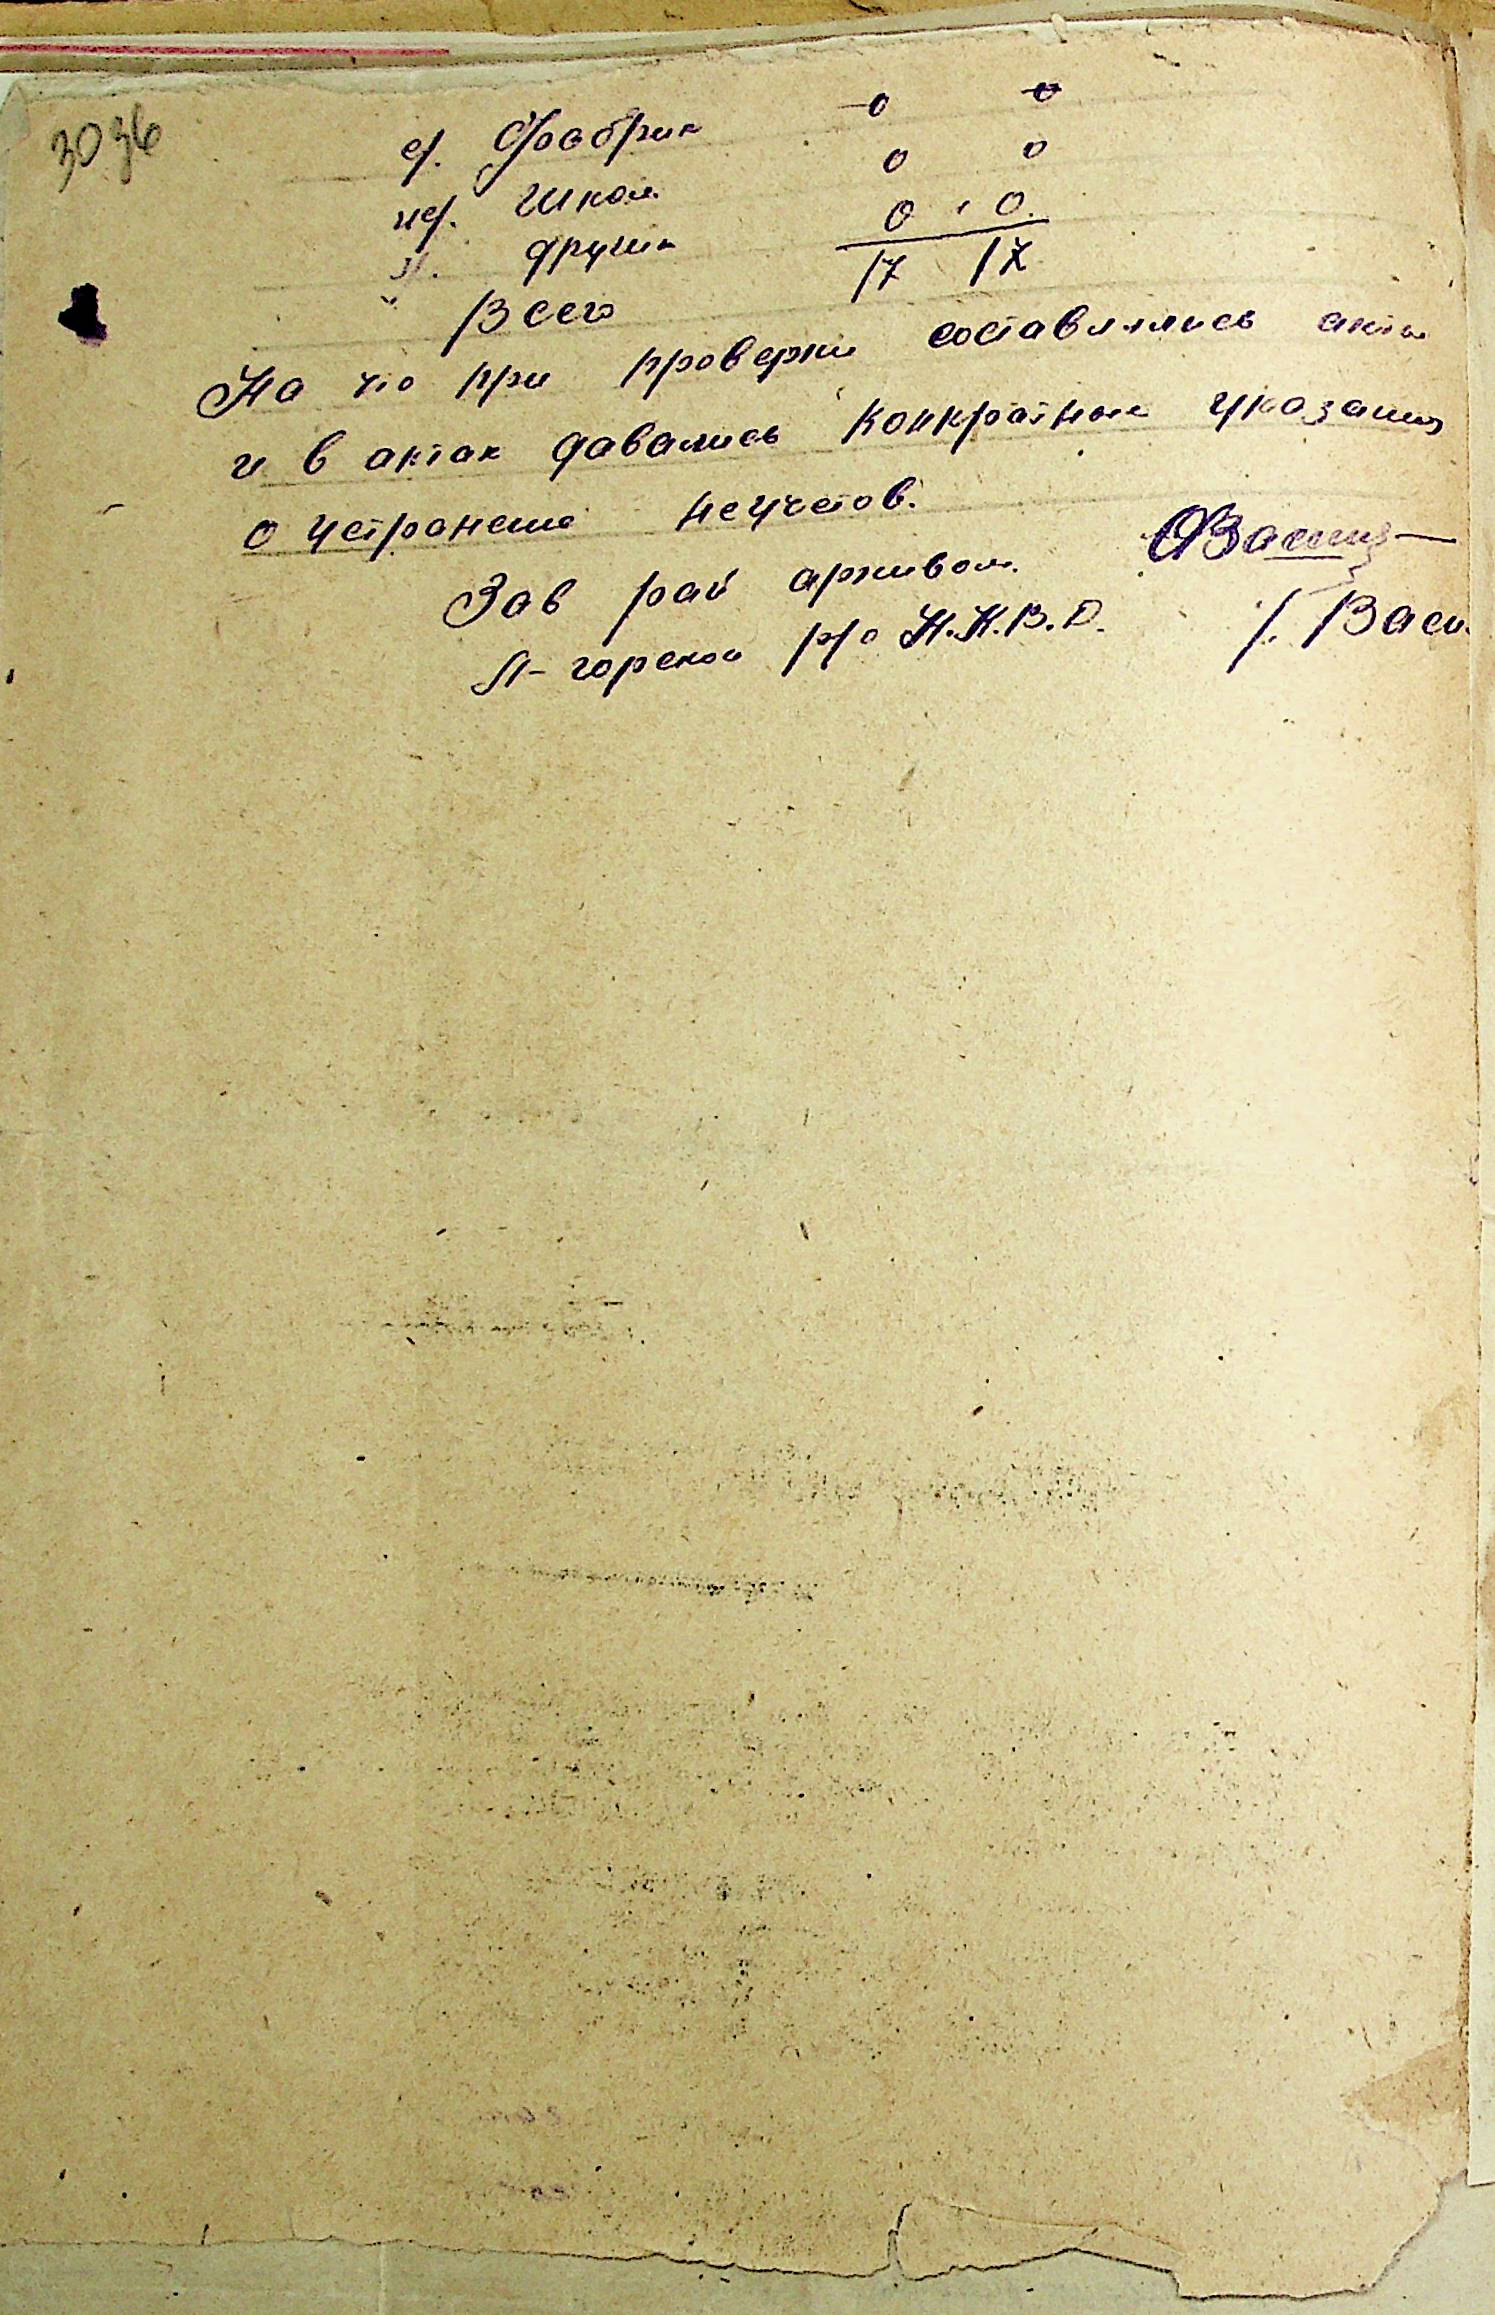 30 36
е/. Фабрик 0 0
ж/. Школ. 0 0
з/. других 0 0.
Всего 17 17
На что при проверки составлялись акты
и в актах давались конкратные указания
о устранение неучетов.
Зав рай архивом.
Л-горской р/о Н.К.В.Д. /. Васи